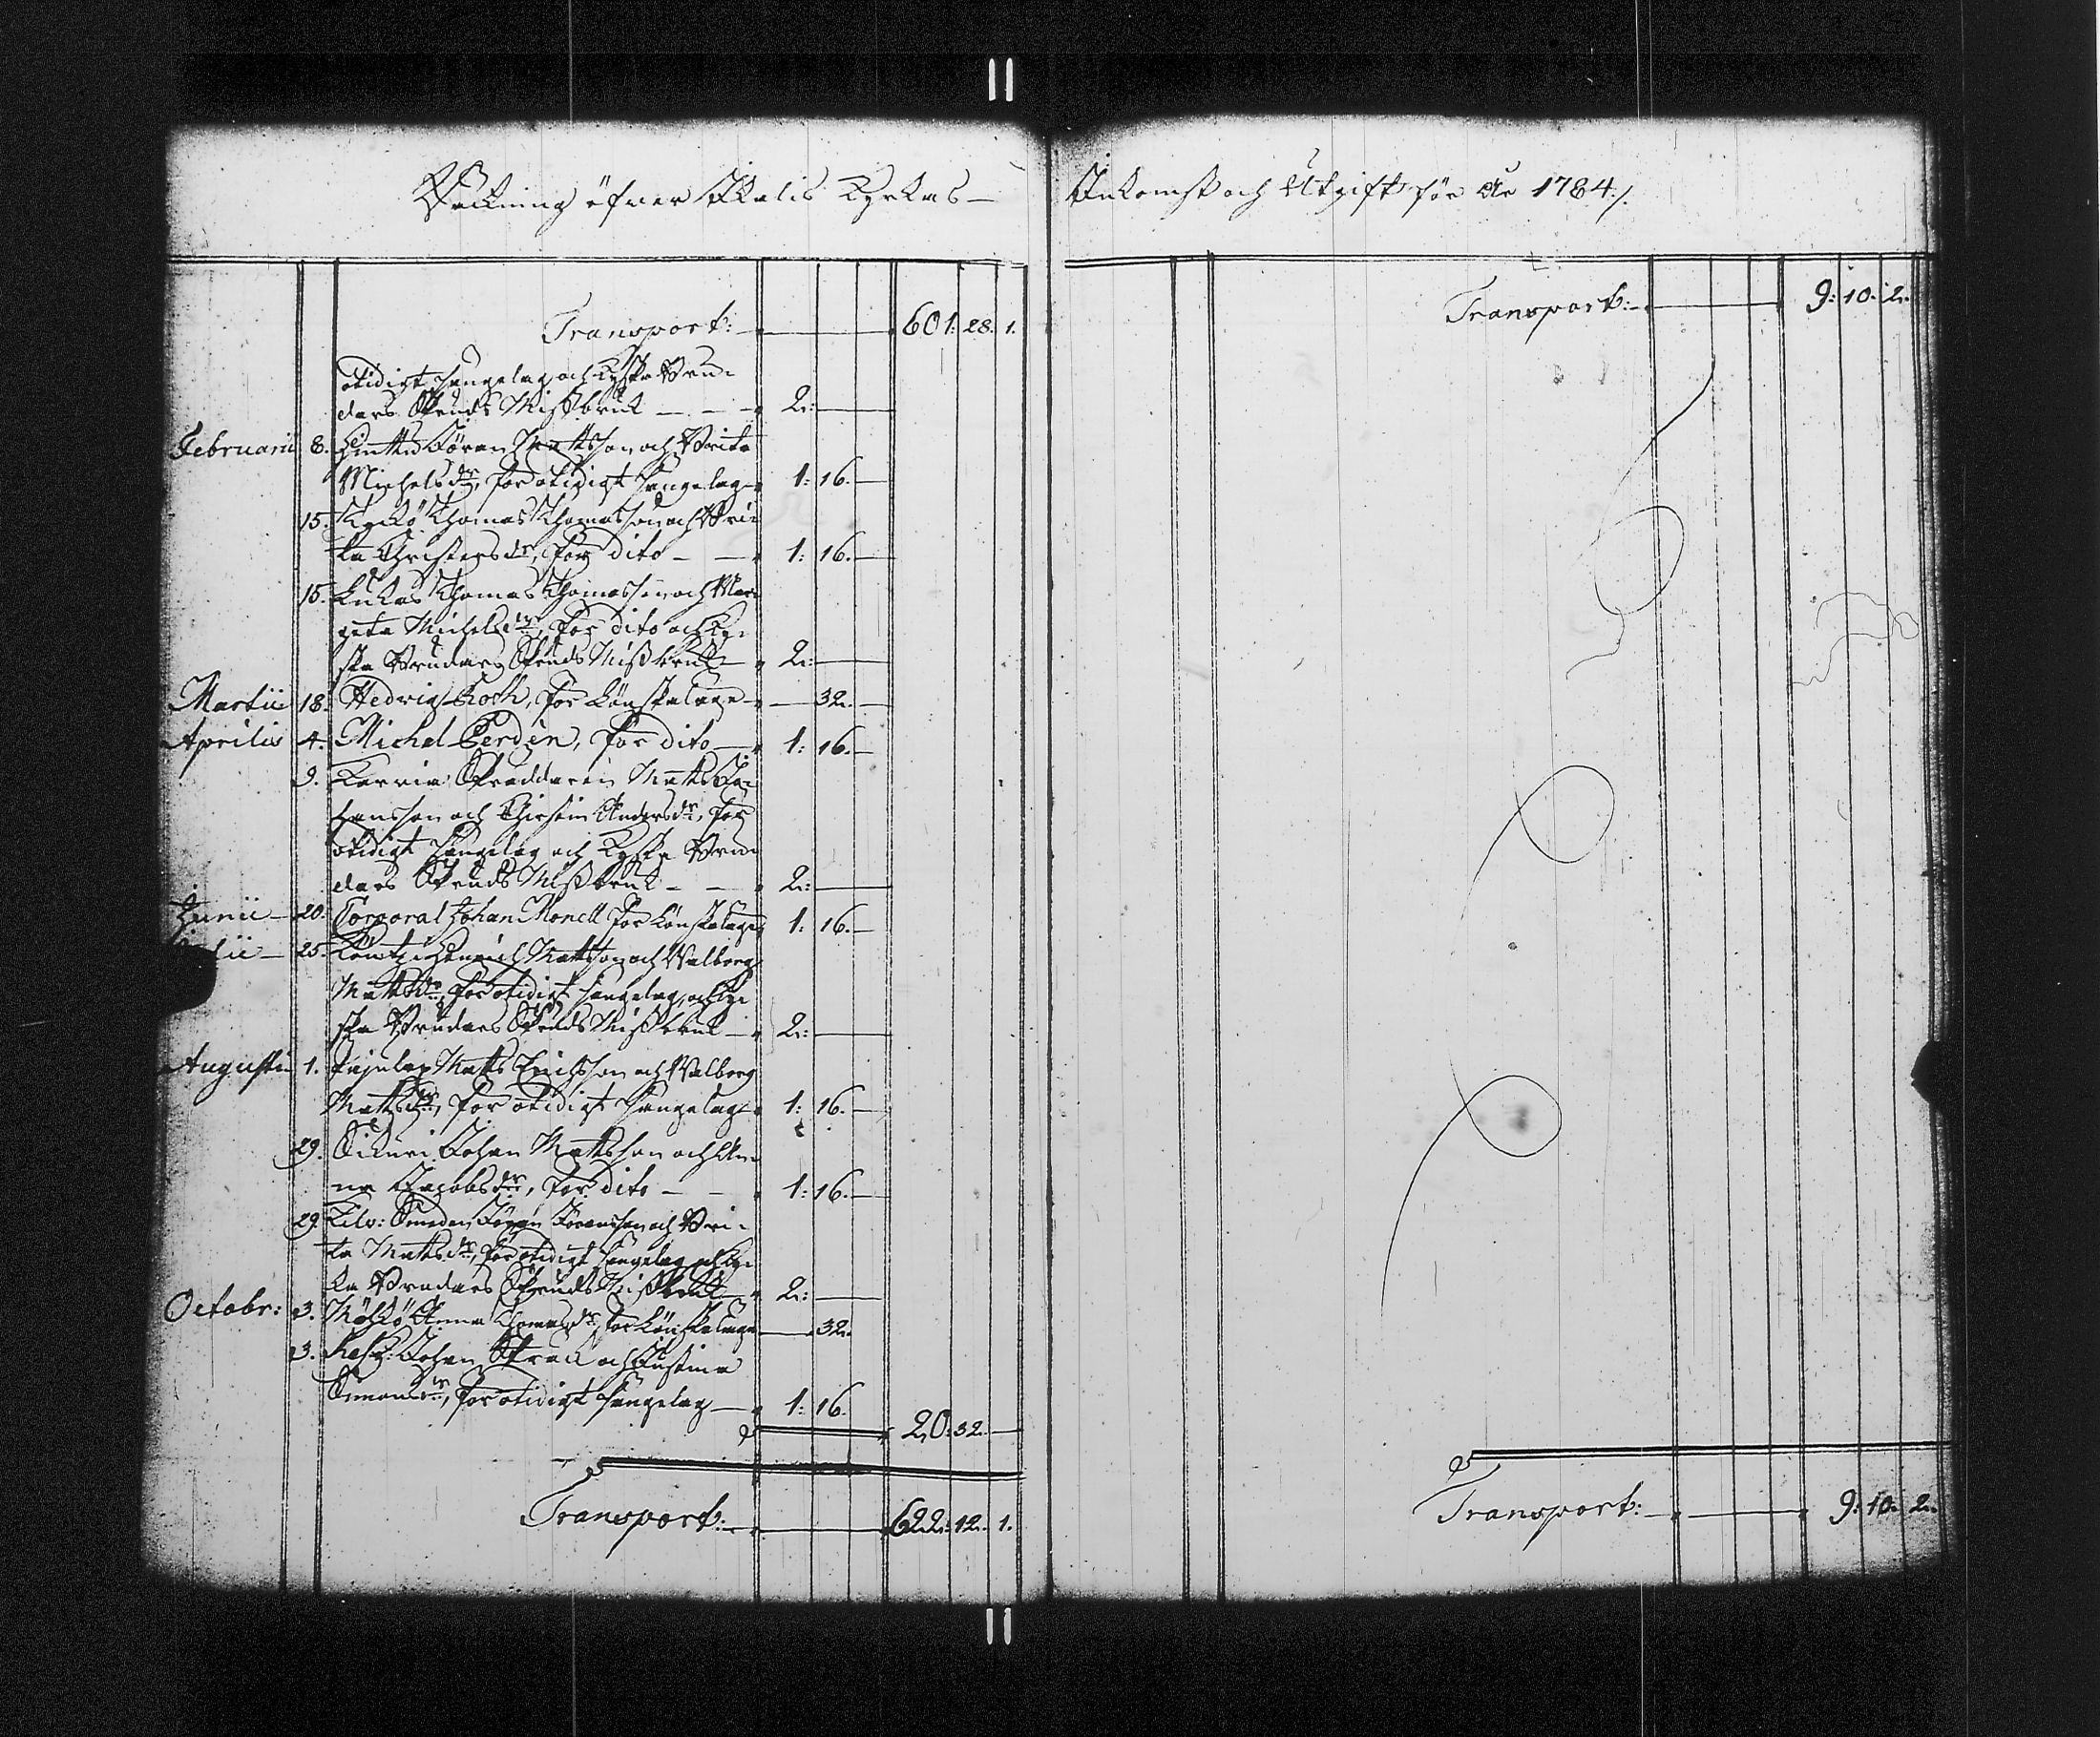 Räkning öfver Ikalis Kyrkas
Inkomst och Utgift för År 1784./.
Transport: 601: 28. 1.
otidigt sängelag och Kyska Bru-
dars Skruds Missbruk 2:
Februarii 8. Göran Mattsson och Brita
Michelsdr, för otidigt sängelag 1: 16.
15. Kyrö Thomas Thomasson och Bri-
ta Christersdr, för dito 1: 16.
15. Thomas Thomasson och Mar-
geta Michelsdr, för dito och Ky-
ska Brudars Skruds Missbruk 2:
Martii 18. Hedvig Roth, för Lönskaläge 32.
Aprilis 4. Michel Perdén, för dito 1: 16.
9. Skräddaren Matts Jo-
hansson och Andersdr, för
otidigt sängelag och Kyska Bru-
dars Skruds Missbruk 2:
Junii 20. Corporal Johan Monell för Lönskaläge 1: 16.
25. Henrich Mattsson och Valborg
Mattsdr, för otidigt sängelag, och Ky-
ska Brudars Skruds Missbruk 2:
Augusti 1. Matts Erichsson och Valborg
Mattsdr, för otidigt sängelag 1: 16.
29. Johan Mattsson och An-
na Jacobsdr, för dito 1: 16.
29. Smeden Göran Göransson och Bri-
ta Mattsdr, för otidigt sängelag och Ky-
ska Brudars Skruds Missbruk 2:
Octobr: 3. Anna Thomasdr, för Lönskaläge 32.
3. Johan och Justina
Simonsdr, för otidigt sängelag 1: 16.
20: 32.
Transport: 622: 12. 1.
Transport: 9: 10. 2.
Transport: 9: 10. 2.